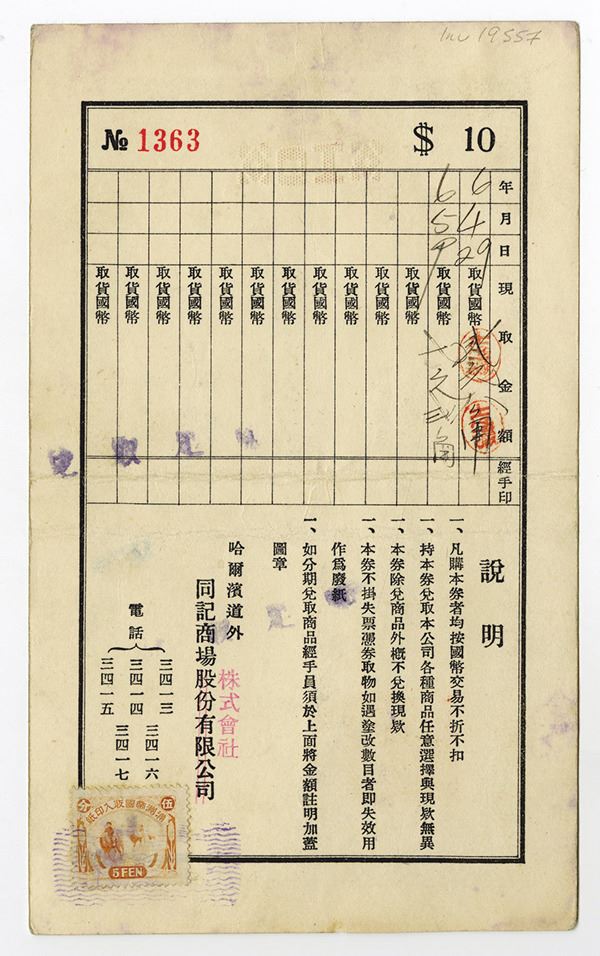 Inv 19557
№ 1363
$ 10
年 月 日 現取金額 經手印
6 4 29
取貨國幣
6 5 9
取貨國幣
一元三角
取貨國幣
取貨國幣
取貨國幣
取貨國幣
取貨國幣
取貨國幣
取貨國幣
取貨國幣
取貨國幣
取貨國幣
取貨國幣
說明
一、凡購本券者均按國幣交易不折不扣
一、持本券兌取本公司各種商品任意選擇與現欵無異
一、本券除兌商品外概不兌換現欵
一、本券不掛失票憑券取物如遇塗改數目者即失效用
作爲廢紙
一、如分期兌取商品經手員須於上面將金額註明加蓋
圖章
哈爾濱道外
株式會社
同記商場股份有限公司
電話
三四一三
三四一四
三四一五
三四一六
三四一七
伍 分
滿洲帝國收入印紙
5 FEN